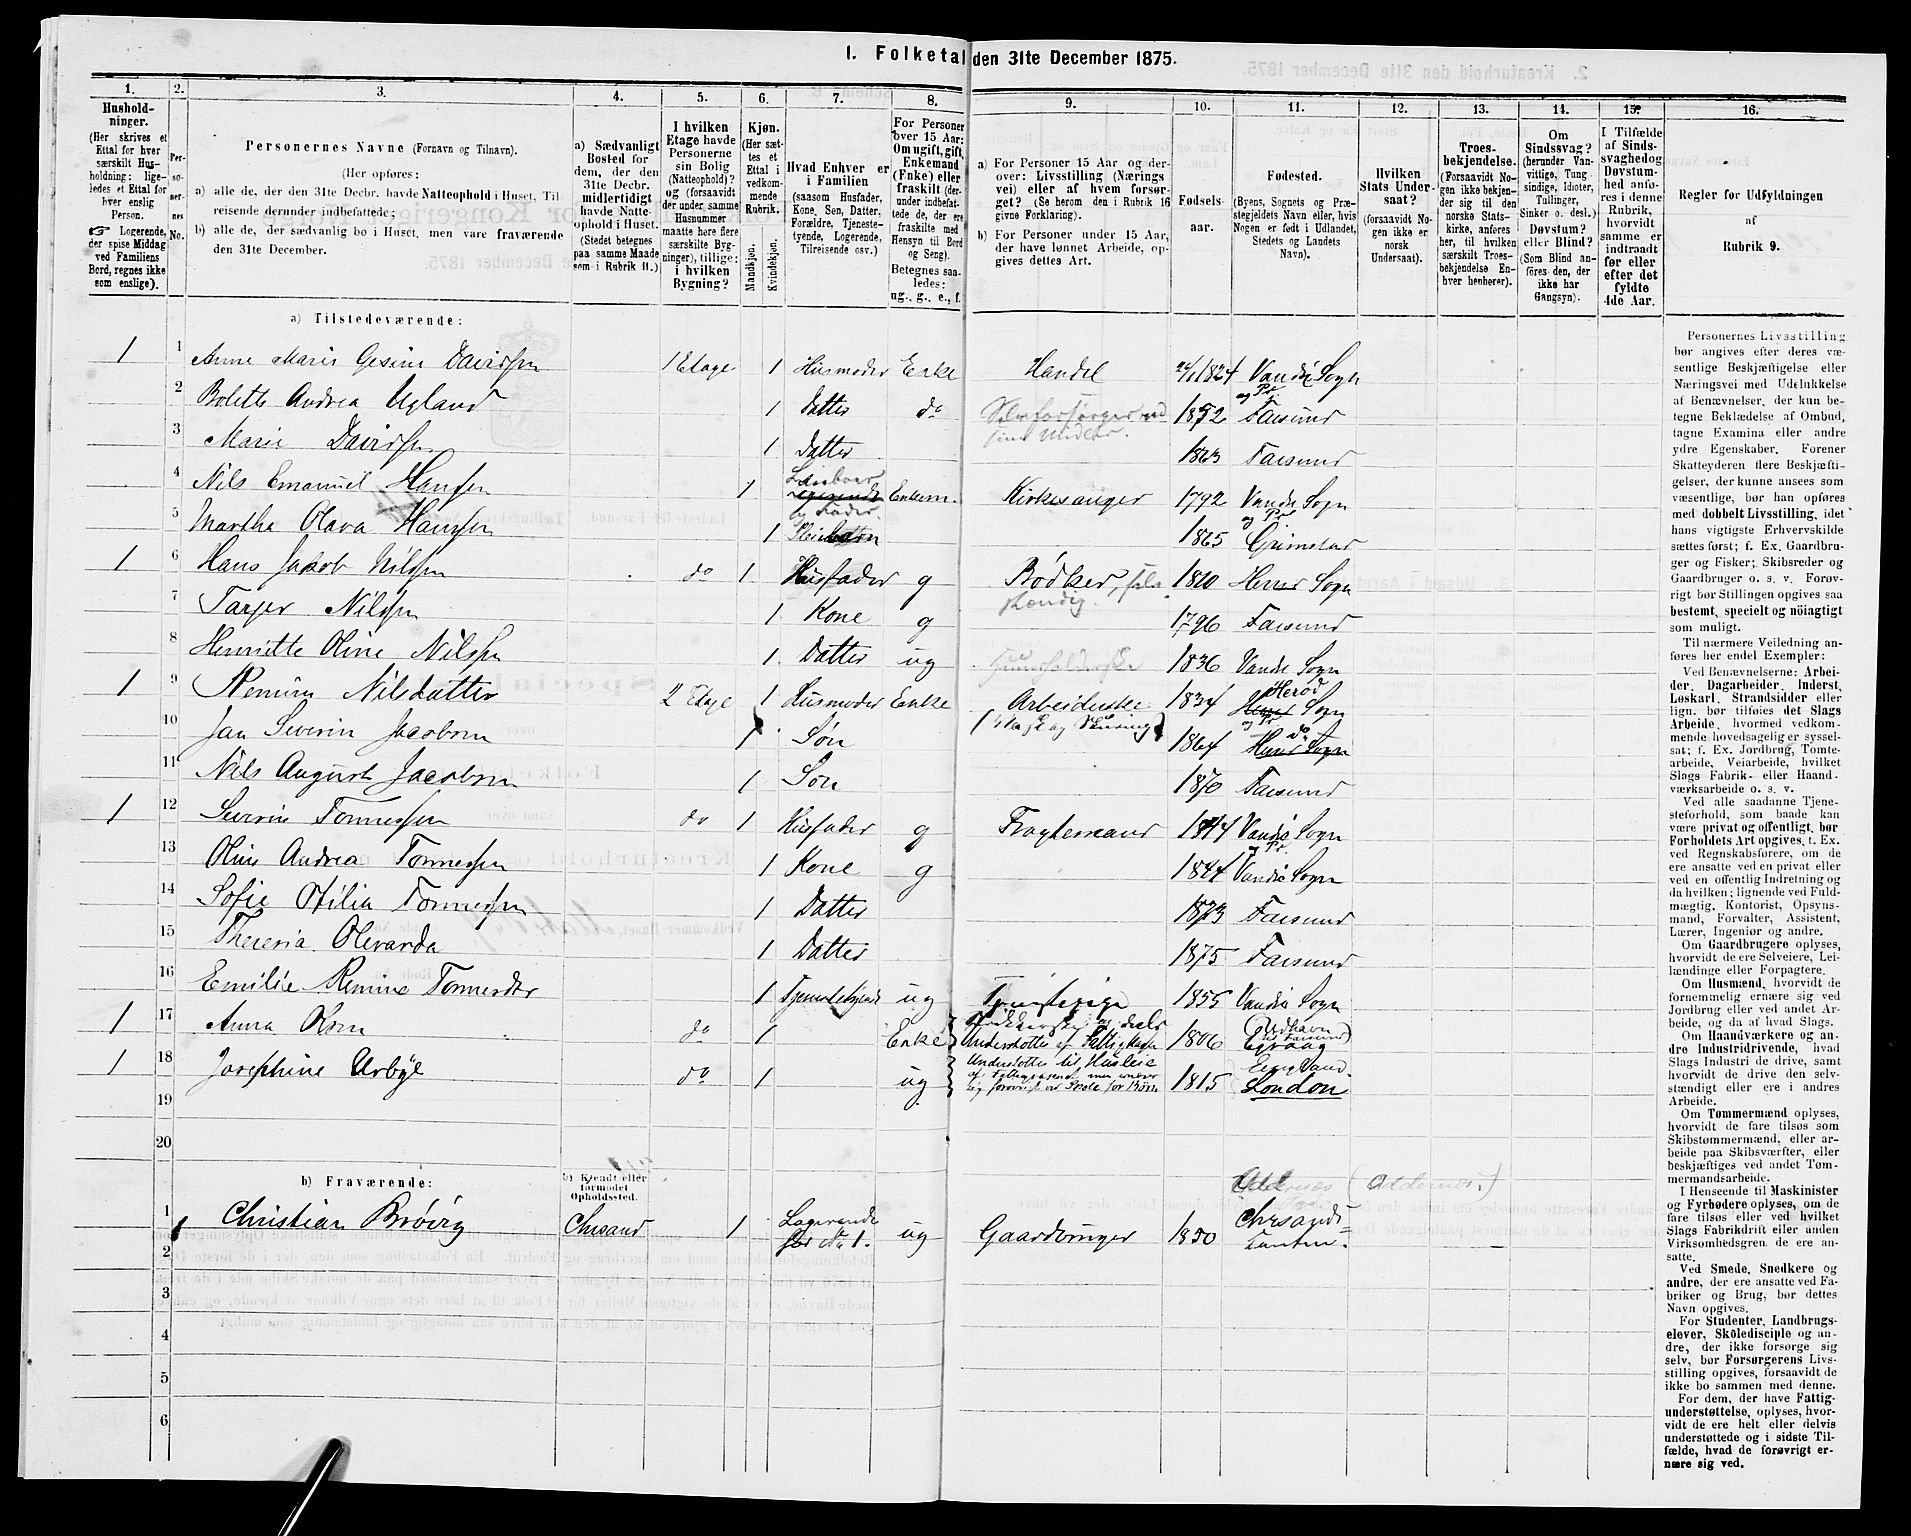 1. Folketal den 31te December 1875.
1. 2. 3. 4. 5. 6. 7. 8. 9. 10. 11. 12. 13. 14. 15. 16.
Hushold-
ninger.
(Her skrives et
Ettal for hver
særskilt Hus-
holdning: lige-
ledes et Ettal for
hver enslig
Person.
Logerende,
der spise Middag
ved Familiens
Bord, regnes ikke
som enslige).
Per-
so-
ner-
nes
No.
Personernes Navne (Fornavn og Tilnavn).
(Her opføres:
a) alle de, der den 31te Decbr. havde Natteophold i Huset, Til-
reisende derunder indbefattede;
b) alle de, der sædvanlig bo i Huset, men vare fraværende
den 31te December.
a) Sædvanligt
Bosted for
dem, der den
31te Decbr.
midlertidigt
havde Natte-
ophold i Huset.
(Stedet betegnes
paa samme Maade
som i Rubrik 11.)
I hvilken
Etage havde
Personerne
sin Bolig
(Natteophold)?
og (forsaavidt
der under samme
Husnummer
maatte høre flere
særskilte Byg-
ninger), tillige:
i hvilken
Bygning?
Kjøn.
(Her sæt-
tes et
Ettal i
vedkom-
mende
Rubrik.
Mandkjøn.
Kvindekjøn.
Hvad Enhver er
i Familien
(saasom Husfader,
Kone, Søn, Datter,
Forældre, Tjeneste-
tyende, Logerende,
Tilreisende osv.)
For Personer
over 15 Aar:
Om ugift, gift,
Enkemand
(Enke) eller
fraskilt (der-
under indbefat-
tede de, der ere
fraskilte med
Hensyn til Bord
og Seng).
Betegnes saa-
ledes:
ug., g., e., f.
a) For Personer 15 Aar og der-
over: Livsstilling (Nærings
vei) eller af hvem forsør-
get? (Se herom den i Rubrik 16
givne Forklaring).
b) For Personer under 15 Aar,
der have lønnet Arbeide, op-
gives dettes Art.
Fødsels-
aar.
Fødested.
(Byens, Sognets og Præ-
stegjeldets Navn eller, hvis
Nogen er født i Udlandet,
Stedets og Landets
Navn).
Hvilken
Stats Under-
saat?
(forsaavidt No-
gen ikke er
norsk
Undersaat).
Troes-
bekjendelse.
(Forsaavidt No-
gen ikke bekjen-
der sig til den
norske Stats-
kirke, anføres
her, til hvilken
særskilt Troes-
bekjendelse En-
hver henhører).
Om
Sindssvag?
(herunder Van-
vittige, Tung-
sindige, Idioter,
Tullinger,
Sinker o. desl.)
Døvstum?
eller Blind?
(Som Blind an-
føres den, der
ikke har
Gangsyn).
I Tilfælde
af Sinds-
svaghed og
Døvstum-
hed anfø-
res i denne
Rubrik,
hvorvidt
samme er
indtraadt
før eller
efter det
fyldte
4de Aar.
Regler for Udfyldningen
af
Rubrik 9.
a) Tilstedeværende:
1 1 Anne Marie Gesine Davidsen 1 Etage 1 Husmoder Enke Handel 1824 Vandsø Sogn og Pr
2 Bolette Andrea Ugland 1 Datter do Selvforsørger ved sine Midler. 1852 Farsund
3 Marie Davidsen 1 Datter 1863 Farsund
4 Nils Emanuel Hansen 1 Enkem. Kirkesanger 1792 Vandsø Sogn og Pr
5 Martha Olava Hansen 1 Pleiebarn 1865 Grimstad
1 6 Hans Jakob Nilsen do 1 Husfader g Bødker, 1810 Herred Sogn
7 Tarjer Nilsen 1 Kone g 1796 Farsund
8 Henriette Oline Nilsen 1 Datter ug Huusholderske 1836 Vandsø Sogn
1 9 Remine Nilsdatter 2 Etage 1 Husmoder Enke Arbeiderske (Vask og Skuring) 1834 Herød Sogn og Pr
10 Jan Severin Jacobsen 1 Søn 1864 do
11 Nils August Jacobsen 1 Søn 1870 Farsund
1 12 Severin Tønnessen do 1 Husfader g Fragtemand 1844 Vandsø Sogn og Pr.
13 Oline Andrea Tønnessen 1 Kone g 1844 Vandsø Sogn
14 Sofie Otilia Tønnessen 1 Datter 1873 Farsund
15 Theresia Olevarda 1 Datter 1875 Farsund
16 Emilie Remine Tønnesdr 1 Tjenestetyende ug Tjenestepige 1855 Vandsø Sogn
1 17 Anna Olsen do 1 Enke Understøttes af Fattigkassen 1806
1 18 Josephine Arbye do 1 ug Understøttes til Husleie 1815 London
19
20
b) Fraværende:
b) Kjendt eller
formodet
Opholdssted.
1 1 Christian Brøvig Chrsand 1 Logerende for No 1. ug Gaardbruger 1850 Oddernes (Oddernes.) Chrsands
2
3
4
5
6
Personernes Livsstilling
bør angives efter deres væ-
sentlige Beskjæftigelse eller
Næringsvei med Udelukkelse
af Benævnelser, der kun be-
tegne Beklædelse af Ombud,
tagne Examina eller andre
ydre Egenskaber. Forener
Skatteyderen flere Beskjæfti-
gelser, der kunne ansees som
væsentlige, bør han opføres
med dobbelt Livsstilling, idet
hans vigtigste Erhvervskilde
sættes først; f. Ex. Gaardbru-
ger og Fisker; Skibsreder og
Gaardbruger o. s. v. Forøv-
rigt bør Stillingen opgives saa
bestemt, specielt og nöiagtigt
som muligt.
Til nærmere Veiledning an-
føres her endel Exempler:
Ved Benævnelserne: Arbei-
der, Dagarbeider, Inderst,
Løskarl, Strandsidder eller
lign. bør tilføies det Slags
Arbeide, hvormed vedkom-
mende hovedsagelig er syssel-
sat; f. Ex. Jordbrug, Tomte-
arbeide, Veiarbeide, hvilket
Slags Fabrik- eller Haand-
værksarbeide o. s. v.
Ved alle saadanne Tjene-
steforhold, som baade kan
være privat og offentligt, bør
Forholdets Art opgives, t. Ex.
ved Regnskabsførere, om de
ere ansatte ved en privat eller
ved en offentlig Indretning og
da hvilken; lignende ved Fuld-
mægtig, Kontorist, Opsyns-
mand, Forvalter, Assistent,
Lærer, Ingeniør og andre.
Om Gaardbrugere oplyses,
hvorvidt de ere Selveiere, Lei-
lændinge eller Forpagtere.
Om Husmænd, hvorvidt de
fornemmelig ernære sig ved
Jordbrug eller ved andet Ar-
beide, og da af hvad Slags.
Om Haandværkere og an-
dre Industridrivende, hvad
Slags Industri de drive, samt
hvorvidt de drive den selv-
stændigt eller ere i andres
Arbeide.
Om Tømmermænd oplyses,
hvorvidt de fare tilsøs som
Skibstømmermænd, eller ar-
beide paa Skibsværfter, eller
beskjæftiges ved andet Tøm-
mermandsarbeide.
I Henseende til Maskinister
og Fyrbødere oplyses, om de
fare tilsøs eller ved hvilket
Slags Fabrikdrift eller anden
Virksomhedsgren de ere an-
satte.
Ved Smede, Snedkere og
andre, der ere ansatte ved Fa-
briker og Brug, bør dettes
Navn opgives.
For Studenter, Landbrugs-
elever, Skoledisciple og an-
dre, der ikke forsørge sig
selv, bør Forsørgerens Livs-
stilling opgives, forsaavidt de
ikke bo sammen med denne.
For dem, der have Fattig-
understøttelse, oplyses, hvor-
vidt de ere helt eller delvis
understøttede og i sidste Til-
fælde, hvad de forøvrigt er-
nære sig ved.